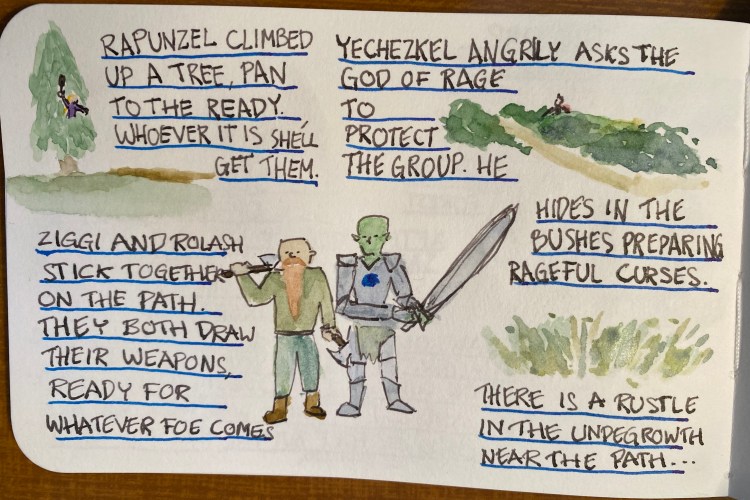 RAPUNZEL CLIMBED
UP A TREE, PAN
TO THE READY.
WHOEVER IT IS SHE'LL
GET THEM.
YECHEZKEL ANGRILY ASKS THE
GOD OF RAGE
TO
PROTECT
THE GROUP. HE
HIDES IN THE
BUSHES PREPARING
RAGEFUL CURSES.
ZIGGI AND ROLASH
STICK TOGETHER
ON THE PATH.
THEY BOTH DRAW
THEIR WEAPONS,
READY FOR
WHATEVER FOE COMES
THERE IS A RUSTLE
IN THE UNDEGROWTH
NEAR THE PATH...